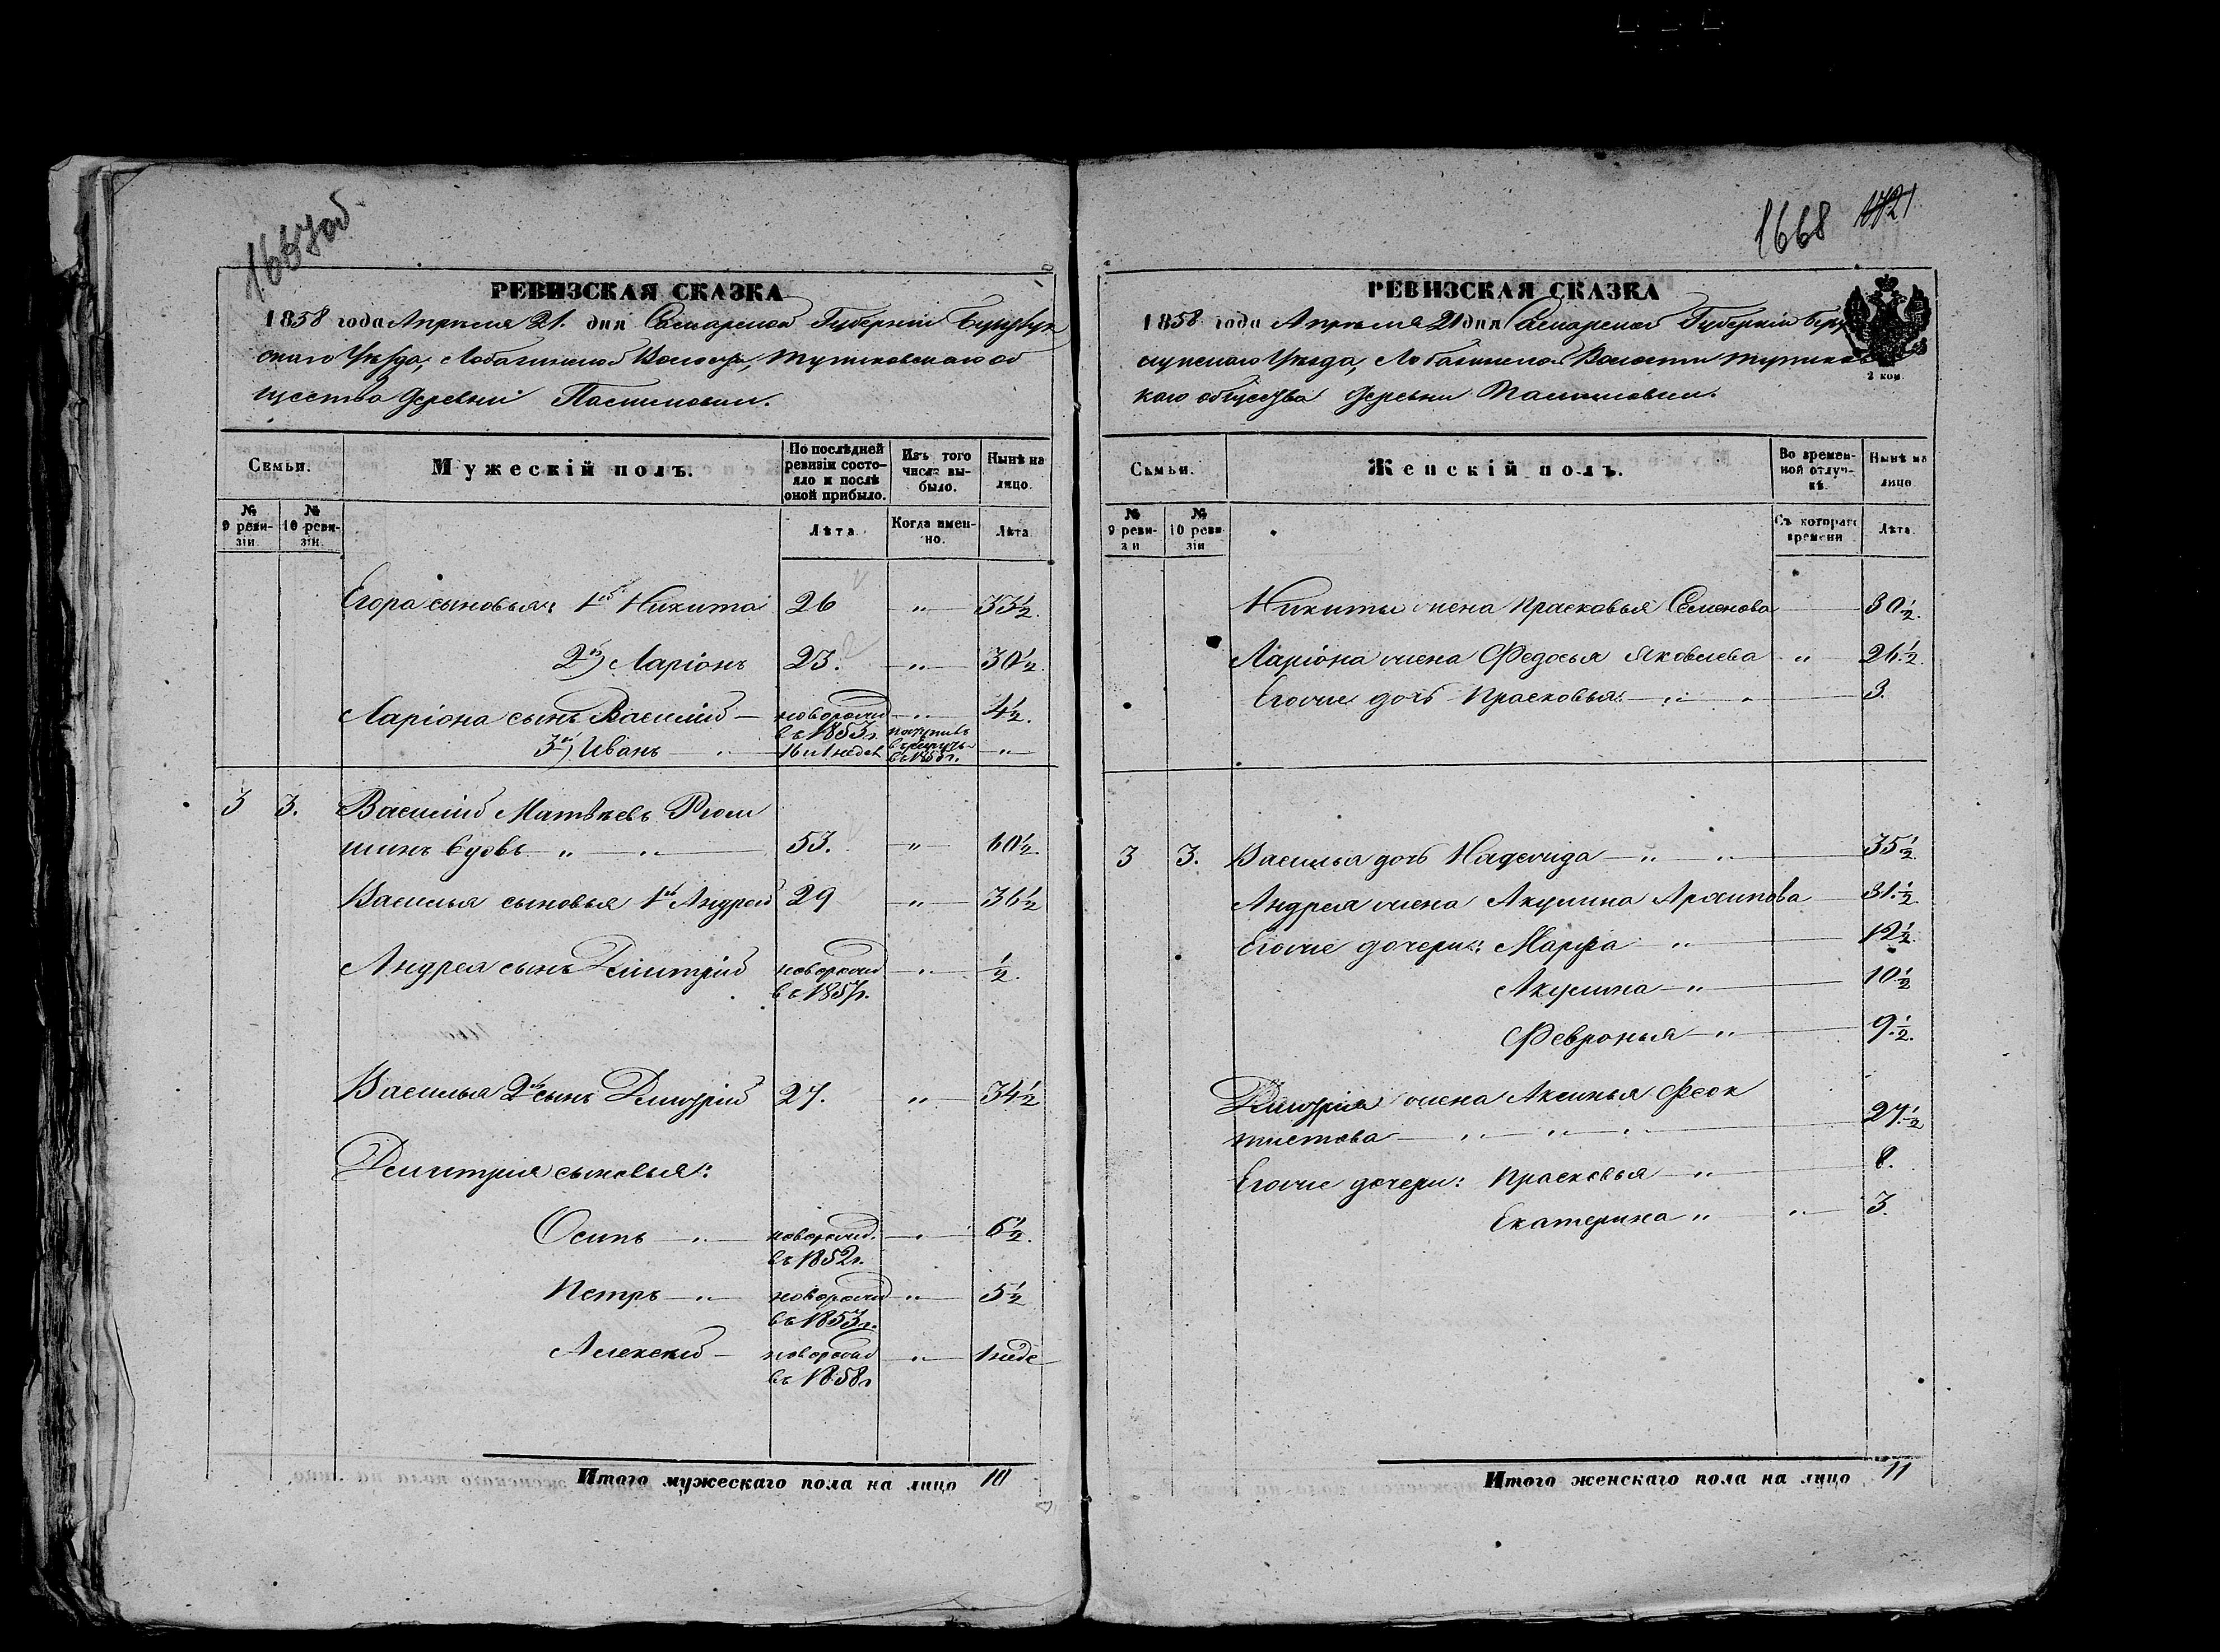 1667об
РЕВИЗСКАЯ СКАЗКА
1858 года Апреля 21. дня Самарской Губернии Бузулук
скаго Уезда, Лобазинской Волости, Тупиковскаго об
щества деревни
Семьи.
Мужескій полъ.
По последней ревизіи состояло и послѣ оной прибыло.
Изъ того числа выбыло.
Нынѣ на лицо.
№ 9 ревизіи.
№ 10 ревизіи.
Лѣта.
Когда именно.
Лѣта.
Егора сыновья: 1й Никита 26 " 33½.
2й) Ларіонъ 23. " 30½.
Ларіона сынъ Василий — новорожд " 4½.
въ 1853г.
3й) Иванъ " 16 и 1 недел въ 1855г. "
3 3. Василий Матвеевъ
шинъ вдовъ " " 53. " 60½.
Василья сыновья 1й Андрей 29 " 36½
Андрея сынъ Дмитрій новорожд " ½.
въ 1857г.
Василья 2й сынъ Дмитрій 27. " 34½
Дмитрия сыновья:
Осипъ " новорожд. " 6½.
въ 1852г.
Петръ " новорожд " 5½
въ 1853г.
Алексей — новорожд " 1 неде
въ 1858г
Итого мужескаго пола на лицо 10
1668 1721
РЕВИЗСКАЯ СКАЗКА
1858 года Апреля 21 дня Самарской Губернии Бузу
лукскаго Уезда, Лобазинской Волости Тупиковс
каго общества деревни
2 коп.
Семьи.
Женскій полъ.
Во временной отлучкѣ.
Нынѣ на лицо
№ 9 ревизіи
№ 10 ревизіи
Съ котораго времени
Лѣта.
Никиты жена Прасковья Семенова 30½.
Ларіона жена Федосья Яковлева " 26½.
Егоже дочь Прасковья. " " 3.
3 3. Василья дочь Надежда " " 35½.
Андрея жена Акулина Архипова 31.½.
Егоже дочери: Марфа " 12½.
Акулина " 10.½
Февронья " 9.½.
Дмитрия жена Аксинья Феок
тистова " " " 27.½
Егоже дочери: Прасковья " 8.
Екатерина " " 3.
Итого женскаго пола на лицо 11